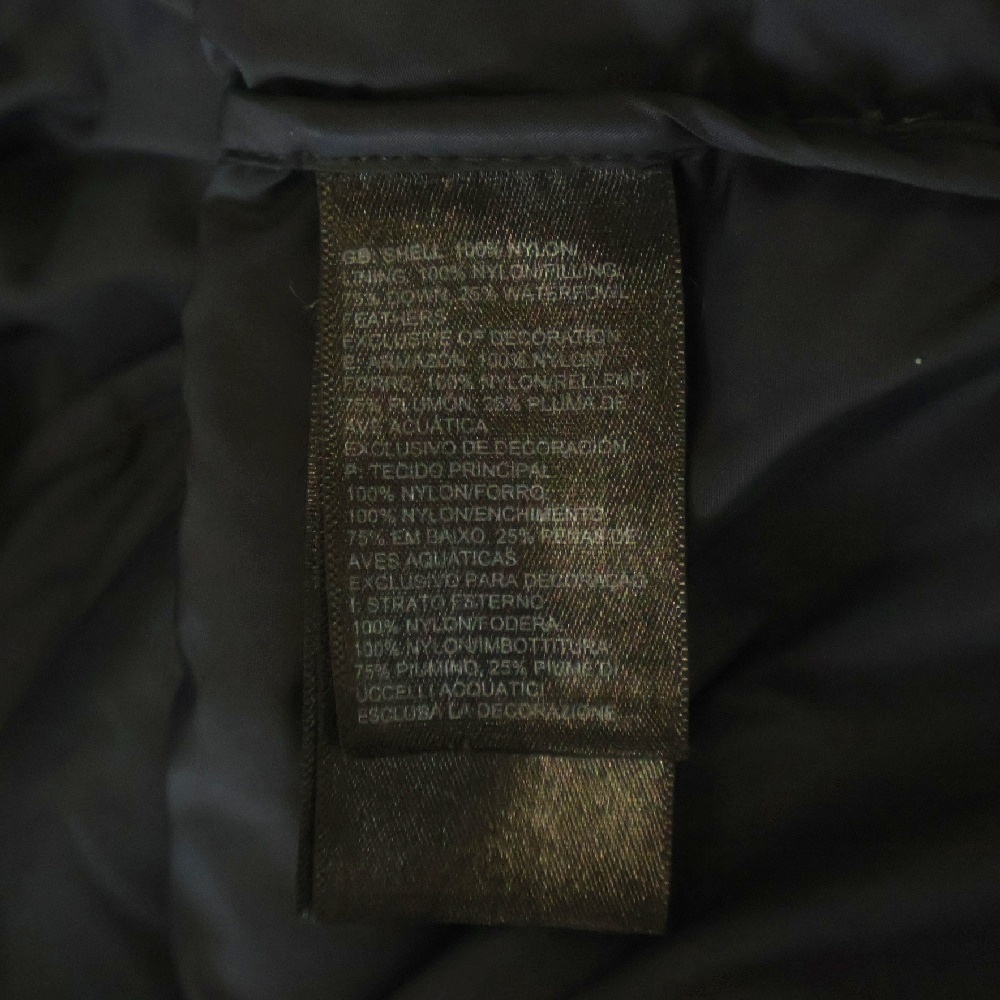 GB: SHELL, 100% NYLON,
LINING, 100% NYLON/FILLING,
75% DOWN, 25% WATERFOWL
FEATHERS
EXCLUSIVE OF DECORATION
E: ARMAZON, 100% NYLON/
FORNO, 100% NYLON/RELLENO
75% PLUMON, 25% PLUMA DE
AVE ACUÁTICA
EXCLUSIVO DE DECORACIÓN
P: TECIDO PRINCIPAL
100% NYLON/FORRO;
100% NYLON/ENCHIMENTO
75% EM BAIXO, 25% PENAS DE
AVES AQUÁTICAS
EXCLUSIVO PARA DECORACAO
I: STRATO ESTERNO
100% NYLON/FODERA,
100% NYLON/IMBOTTITURA,
75% PIUMINO, 25% PIUME DI
UCCELLI ACQUATICI
ESCLUBA LA DECORAZIONE